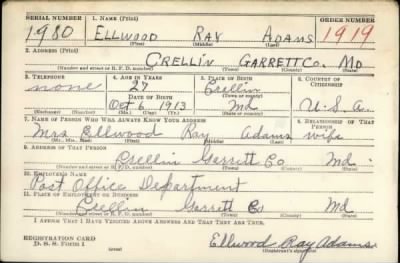 SERIAL NUMBER 1. NAME (Print) ORDER NUMBER
1980 ELLWOOD RAY ADAMS 1919
(First) (Middle) (Last)
2. ADDRESS (Print)
CRELLIN GARRETT Co. MD
(Number and street or R. F. D. number) (Town) (County) (State)
3. TELEPHONE 4. AGE IN YEARS 5. PLACE OF BIRTH 6. COUNTRY OF CITIZENSHIP
none 27 Crellin
DATE OF BIRTH (Town or county)
Oct 6, 1913 Md U.S.A.
(Exchange) (Number) (Mo.) (Day) (Yr.) (State or country)
7. NAME OF PERSON WHO WILL ALWAYS KNOW YOUR ADDRESS 8. RELATIONSHIP OF THAT PERSON
Mrs Ellwood Ray Adams wife
(Mr., Mrs., Miss) (First) (Middle) (Last)
9. ADDRESS OF THAT PERSON
Crellin Garrett Co Md.
(Number and street or R. F. D. number) (Town) (County) (State)
10. EMPLOYER'S NAME
Post Office Department
11. PLACE OF EMPLOYMENT OR BUSINESS
Crellin Garrett Co Md
(Number and street or R. F. D. number) (Town) (County) (State)
I AFFIRM THAT I HAVE VERIFIED ABOVE ANSWERS AND THAT THEY ARE TRUE.
REGISTRATION CARD
D. S. S. Form 1 (over) Ellwood Ray Adams
(Registrant's signature)